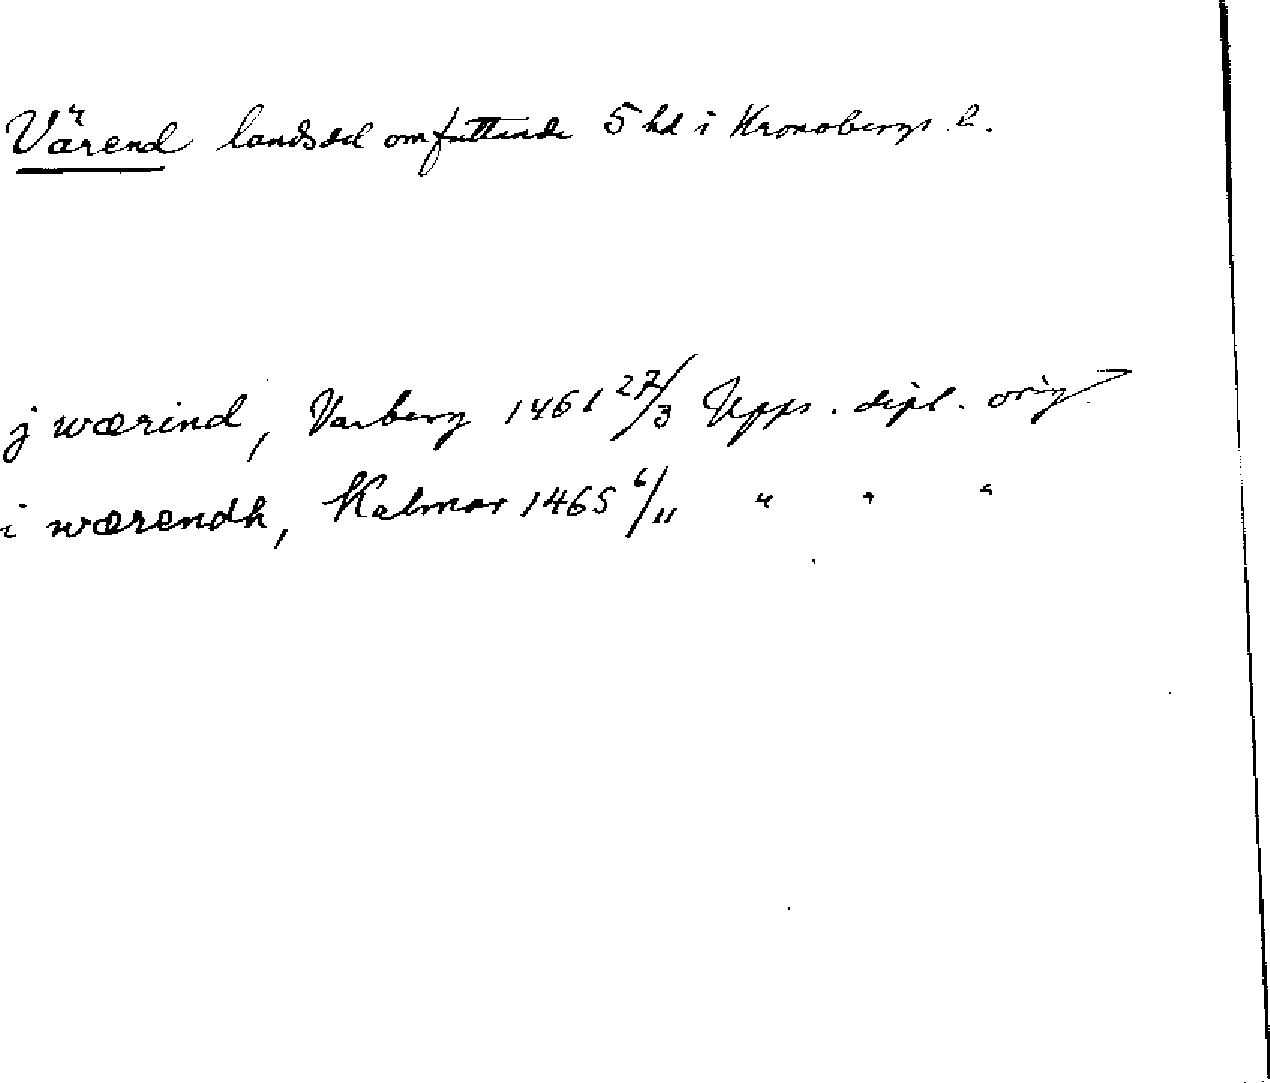 Värend landsdel omfattande 5 hd i Kronobergs l.
j wærind, Varberg 1461 27/3 Upps. dipl. orig.
i wærendh, Kalmar 1465 6/11 " " "